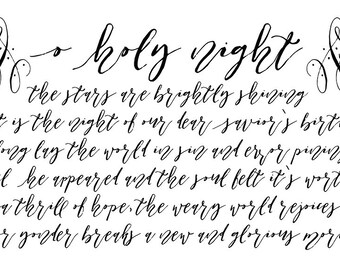 o holy night
the stars are brightly shining
t is the night of our dear savior's birt
long lay the world in sin and error pining
he appeared and the soul felt it's wort
a thrill of hope, the weary world rejoices
r yonder breaks a new and glorious mor